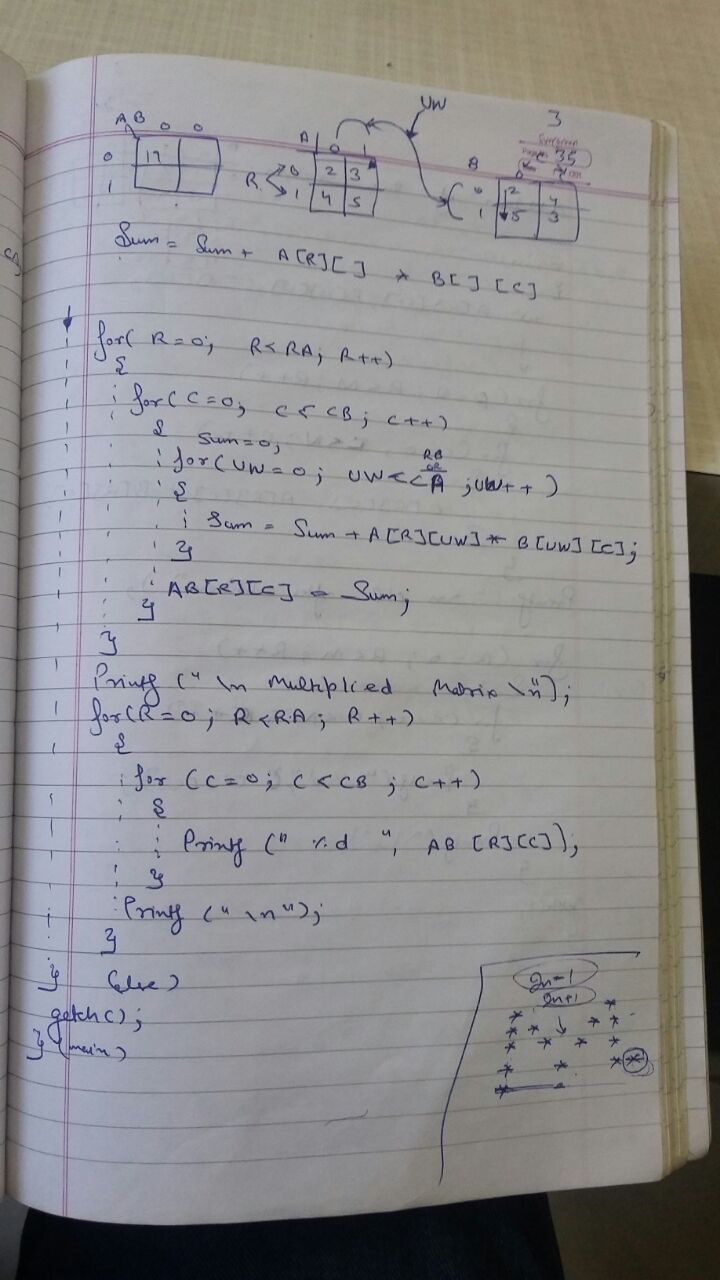 UW
3
35
A B 0 0
0 19
1
A 0 1
R 0 2 3
1 4 5
B 0
0 2 4
1 5 3
Sum = Sum + A[R][ ] * B[ ][C]
for( R=0; R<RA; R++)
{
for( C=0; C<CB; C++)
{ Sum=0;
RB
OR
for(UW=0; UW<CA; UW++)
{
Sum = Sum + A[R][UW] * B[UW][C];
}
AB[R][C] = Sum;
}
}
Printf (" \n Multiplied Matrix \n");
for(R=0; R<RA; R++)
{
for (C=0; C<CB; C++)
{
Printf (" %d ", AB [R][C]);
}
Printf (" \n");
}
} (else)
getch();
} (main)
2n-1
2n+1